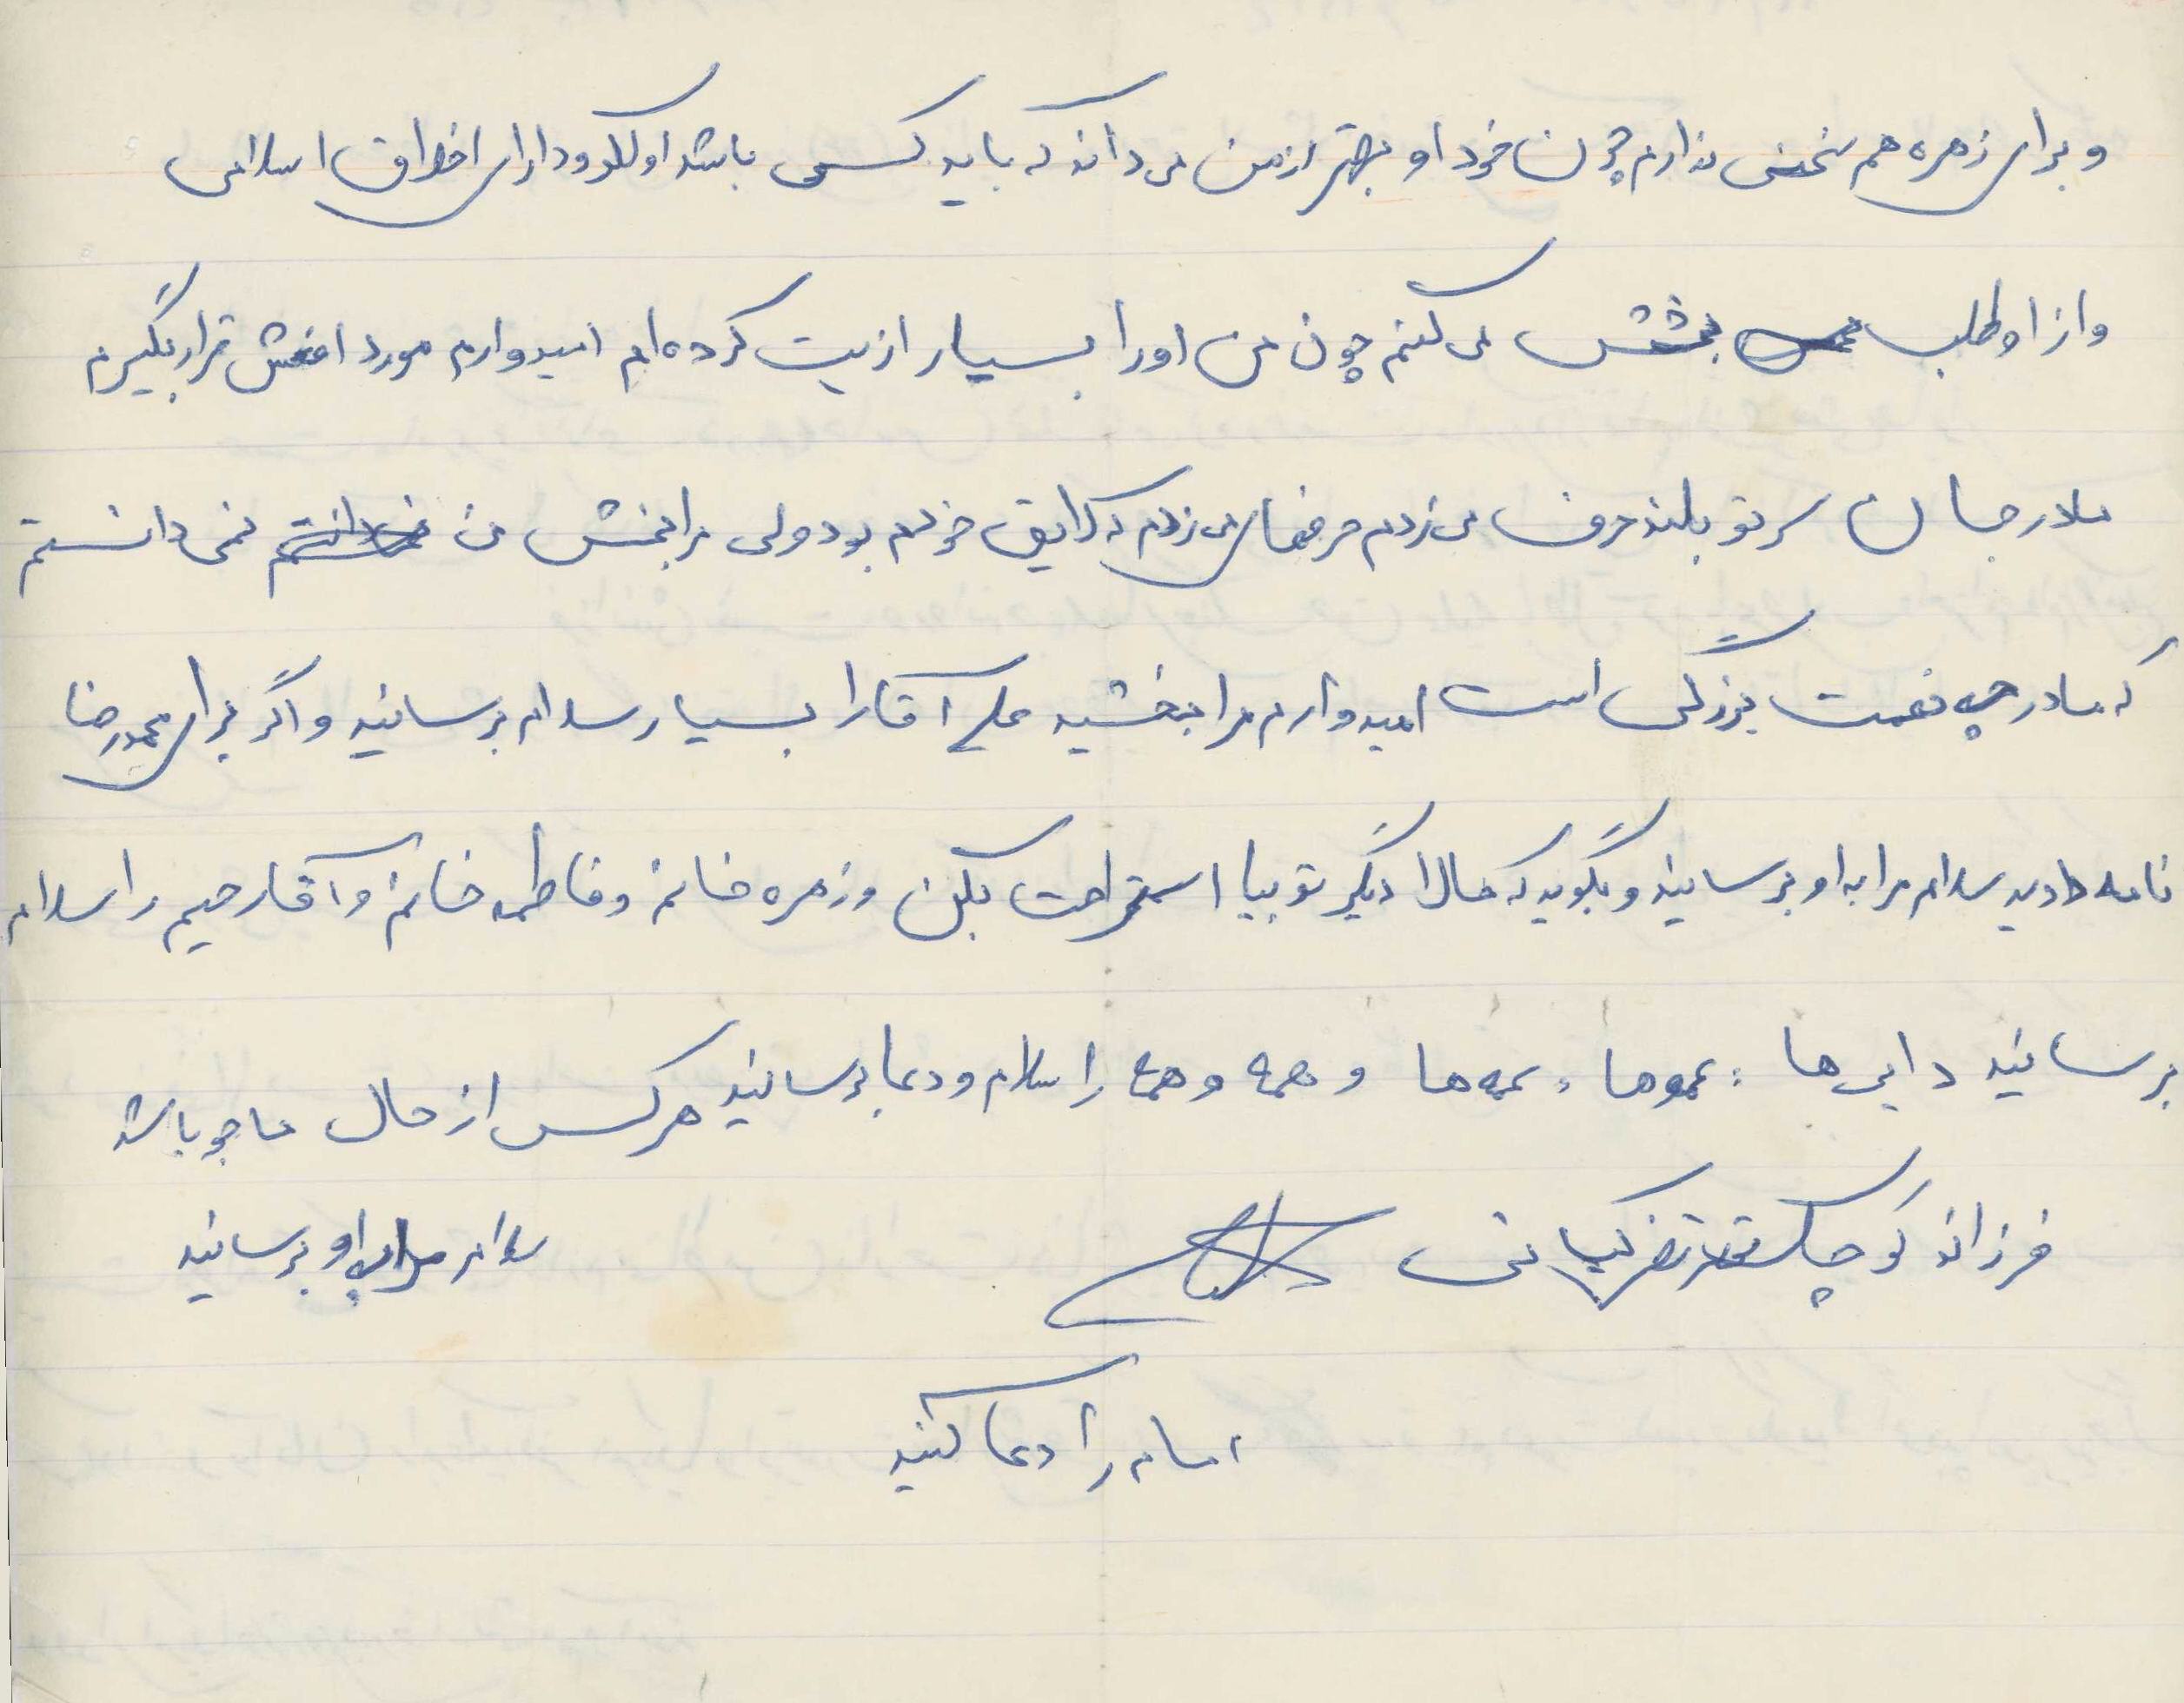 و برای زهره هم سخنی ندارم چون خود او بهتر از من می‌داند که باید کسی باشد اولگو و دارای اخلاق اسلامی
و از او طلب بخشش می کنم چون من او را بسیار ازیت کرده‌ام امیدوارم مورد قرار بگیرم
مادر جان سر تو بلند حرف می زدم حرفهای می زدم که لایق خودم بود ولی مرا ببخش من نمی دانستم
که مادر چه نعمت بزرگی است امیدوارم مرا ببخشید علی آقا را بسیار سلام برسانید و اگر برای محمدرضا
نامه دادید سلام مرا به او برسانید و بگوید که حالا دیگر تو بیا استراحت بکن و زهره خانم و فاطمه خانم و آقا رحیم را سلام
برسانید دایی ها ، عموها ، عمه ها و همه و همه را سلام و دعا برسانید هر کس از حال ما جویا شد
فرزند کوچک کیانی سلام مرا به او برسانید
امام را دعا کنید